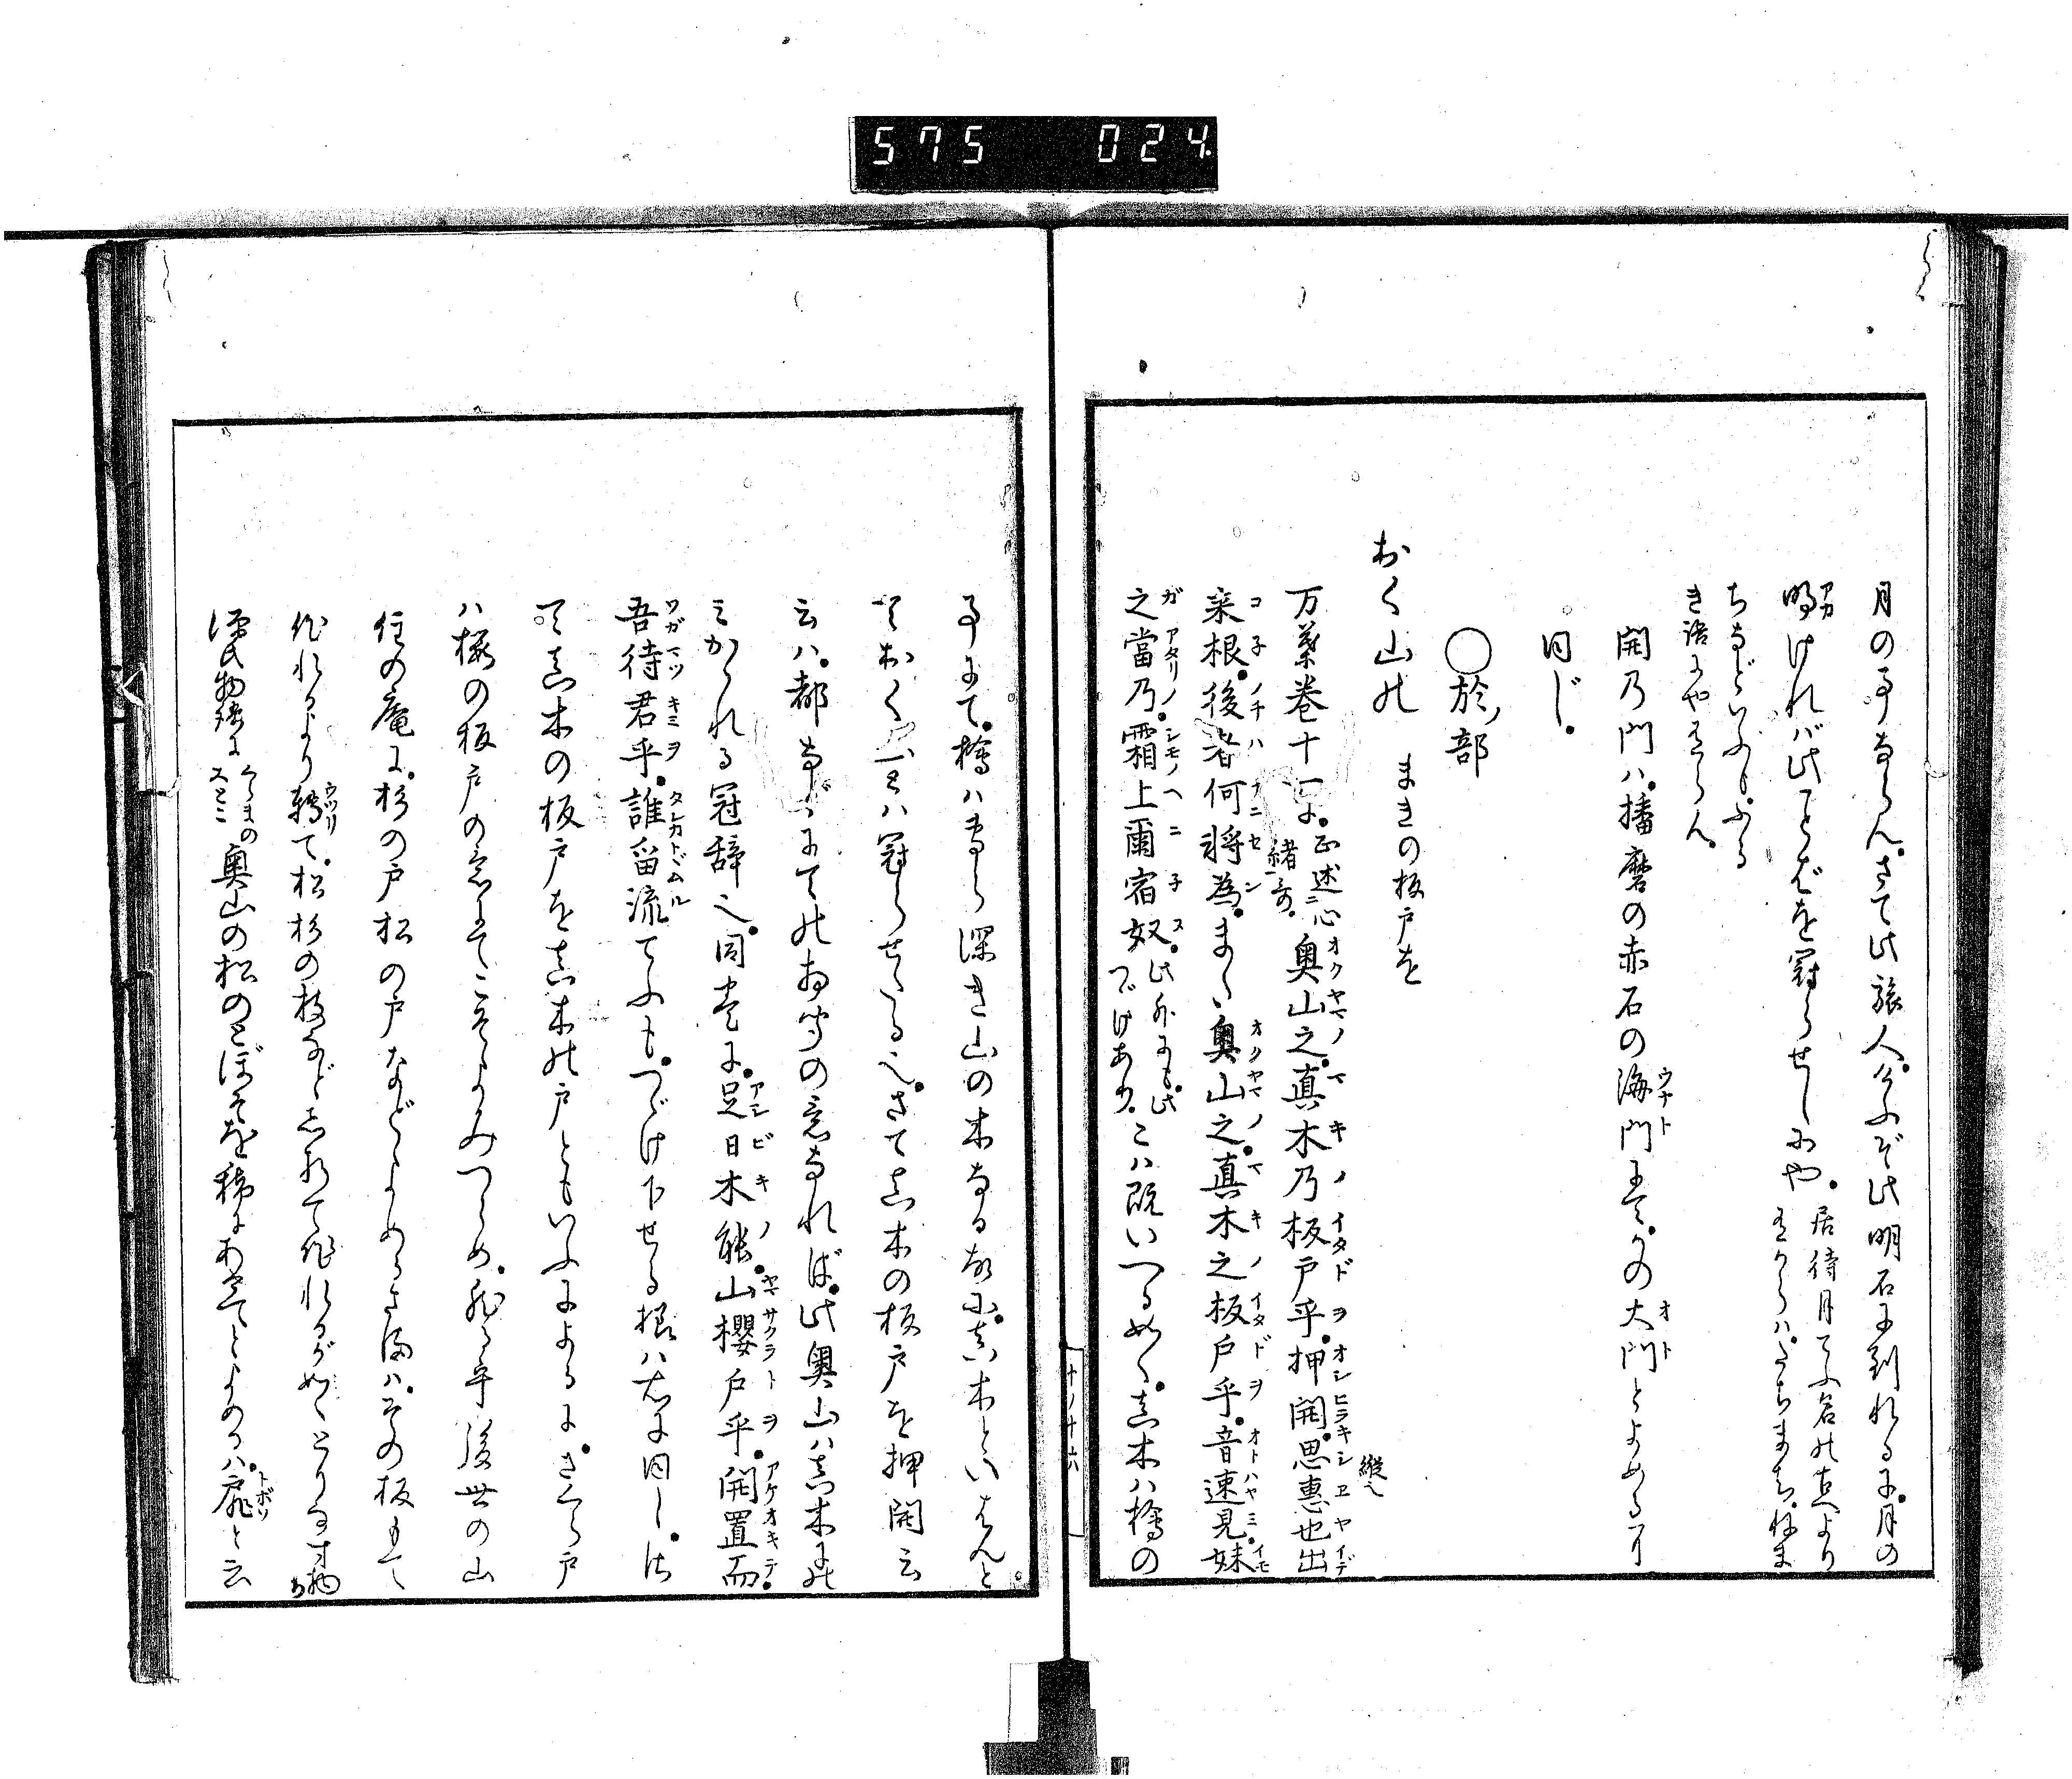 575 024
月の事ならん。さて此旅人。けふぞ此明石に到れるに。月の
明けれバ此ことばを冠らせしにや。居待月てふ名の古へより
有からハ。たちまち。ねま
ちなどいふもふる
き語にやあらん。
開乃門ハ。播磨の赤石の海門にて。かの大門とよめるに
同じ。
○於ノ部
おく山の まきの板戸を
万葉巻十一に。正述心緒哥。奥山之。真木乃板戸乎。押開。思惠也出
縦也
来根。後者何将為。また奥山之。真木之板戸乎。音速見。妹
之當乃。霜上爾宿奴。此外にも。此つゞけあり。こハ既いへる如く。真木ハ檜の
十ノ十六
事にて。檜ハ専ら深き山の木なる故に。真木といはんと
ておく山とハ冠らせたる也。さて真木の板戸を押開云云
ハ。都
かゝれる冠辞也。同巻に。足日木能。山櫻戸乎。開置而
吾待君乎。誰留流てふも。つゞけ下せる様ハ右に同し。
て真木の板戸を真木の戸ともいふによるに。さくら戸
ハ櫻の板戸の意にてこそよみつらめ。然るを後世の山
住の庵に。杉の戸松の戸などよめるたぐひハ。その板にて
作れるより轉て。松杉の枝などしをりて作れるが如くとりなす
源氏物語に 奥山の松のとぼそを稀にあけてとよめるハ。扉と云